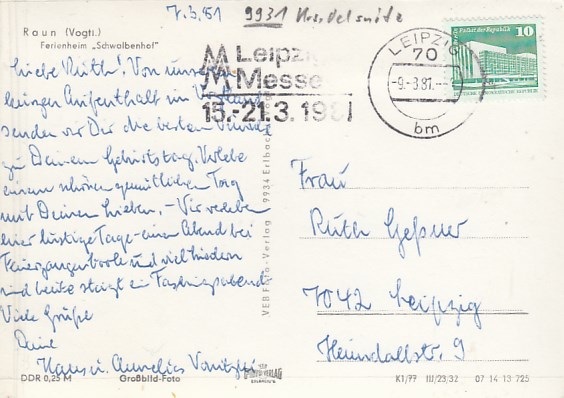 7.3.81 9931
Raun (Vogtl.)
Ferienheim „Schwalbenhof"
Liebe Ruth! Von unserem
kurzen Aufenthalt im Vogtland
senden wir Dir die besten Wünsche
zu Deinem Geburtstag. Verlebe
einen schönen gemütlichen Tag
mit Deinen Lieben. – Wir verleben
hier lustige Tage – einen Abend bei
Feuerzangenbowle und viel Liedern
und heute steigt ein Faschingsabend
Viele Grüße
Deine
Hans u. Annelies
DDR 0,25 M Großbild-Foto
VEB Foto-Verlag 9934 Erlbach
Leipziger
Messe
15.-21.3.1981
LEIPZIG
70
-9.-3.81.--
bm
Palast der Republik 10
Frau
Ruth Geßner
7042 Leipzig
Heimdallstr. 9
K1/77 III/23/32 07 14 13 725